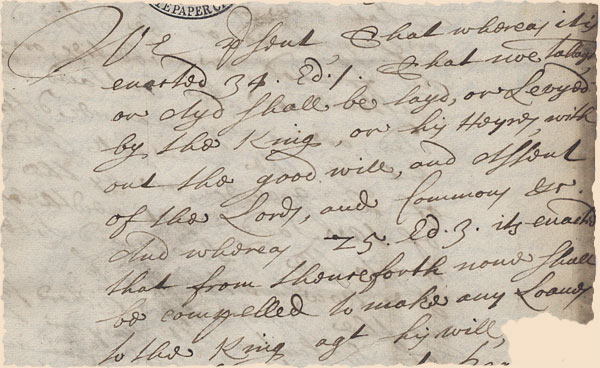 TE PAPER
We p'sent, That whereas it is
enacted 34. Ed. 1. That noe tallage
or Ayd shall be layd, or Levyed
by the King, or his Heyres, with
out the good will, and Assent
of the Lords, and Commons &c.
And whereas 25. Ed. 3. its enacted
that from thenceforth none shall
be compelled to make any Loanes
to the King agt his will,